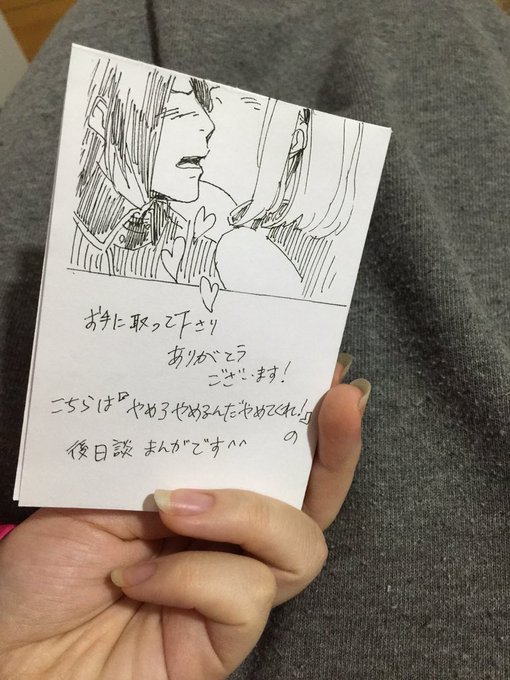 お手に取って下さり
ありがとう
ございます!
こちらは『やめろやめるんだやめてくれ!』の
後日談 まんがです^^